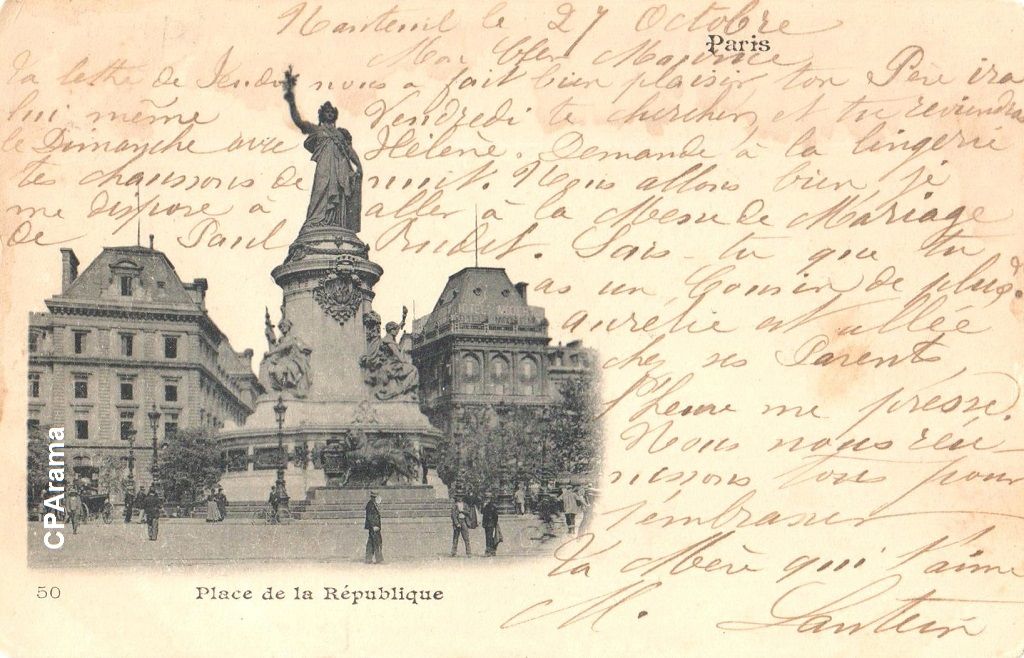 Nanteuil le 27 Octobre
Paris
Mon Cher Maurice
Ta lettre de Jeudi nous a fait bien plaisir, ton Père ira
lui même Vendredi te chercher, et tu reviendra
le Dimanche avec Hélène. Demande à la lingerie
tes chaussons de nuit. Nous allons bien, je
me dispose à aller à la Messe de Mariage
de Paul Sais-tu que tu
as un Cousin de plus.
Aurélie est allée
chez ses Parents
l'heure me presse.
Nous nous réu-
nissons tous pour
t'embrasser
Ta Mère qui t'aime
M.
CPArama
50 Place de la République